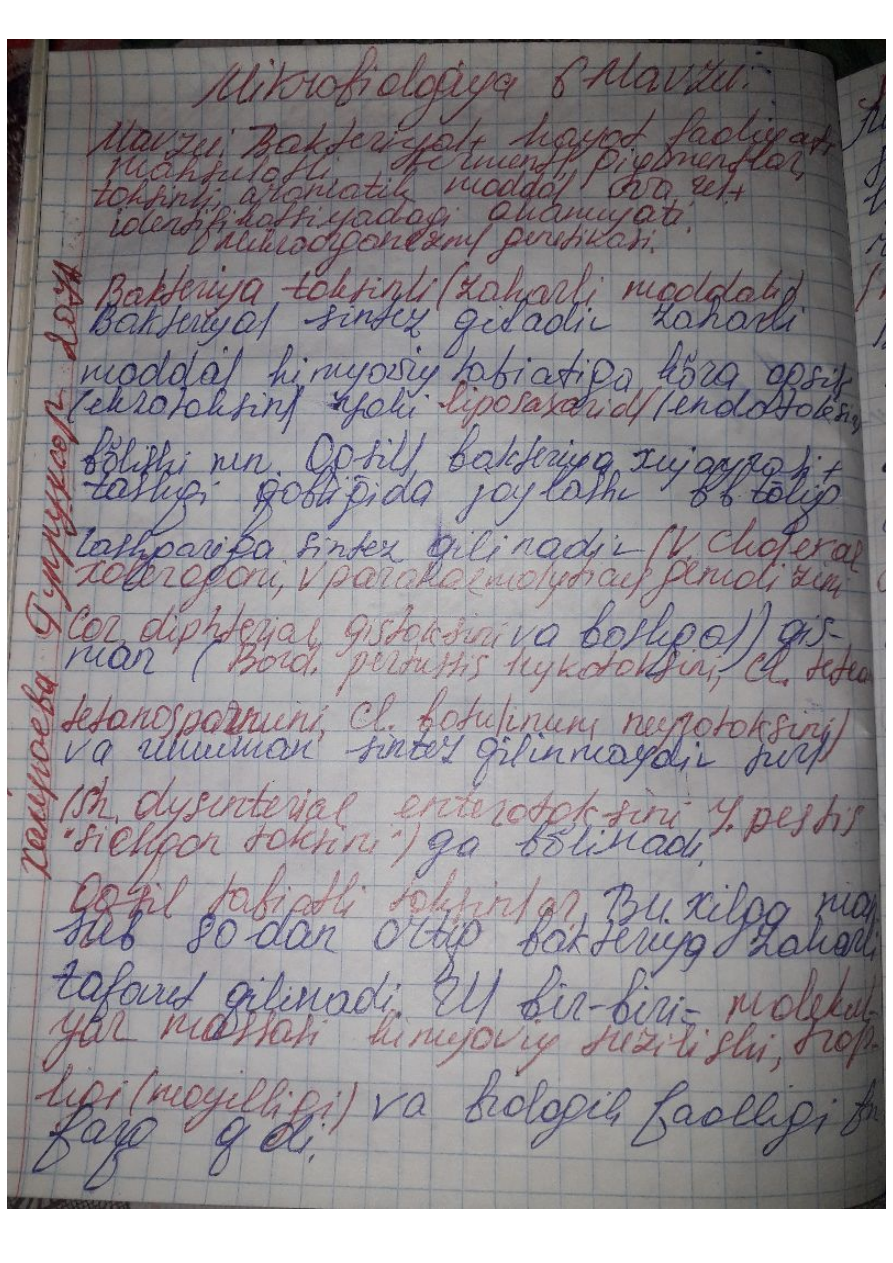 Mikrobiologiya 6 Mavzu:
Mavzu: Bakteriyal+ hayot faoliyati
mahsuloti ferment, pigmentlar,
toksinli, aromatik moddal,
identifikatsiyadagi ahamiyati.
genetikasi.
Bakteriya toksinli (zaharli moddalar)
Bakteriyal sintez qiladi zaharli
moddal himyoviy tabiatiga kõra oqsil
(ekzotoksin) yoki liposaxarid (endotoksin)
bõlishi mn. Oqsill bakteriya xujayrasi+
tashqi qobiğida joylash tõliq
tashqariga sintez qilinadi (V. cholerae
xolerogeni, V parahaemolyticus gemolizini
Cor. diphteriae gistoksini va boshqal) qis-
man (Bord. pertussis Cl. tetani
Cl. botulinum neyrotoksini)
va umuman sintez qilinmaydi
(Sh. dysenteriae enterotoksini Y. pestis
"sichqon toksini") ga bõlinadi.
Oqsil tabiatli toksinlar. Bu xilga man
sub 80 dan ortiq bakteriya zaharli
tafovut qilinadi. Ul bir-biri= molekul-
yar massasi himyoviy tuzilishi, trop-
ligi (moyilligi) va biologik faolligi bn
farq q di.
Хамроева 207